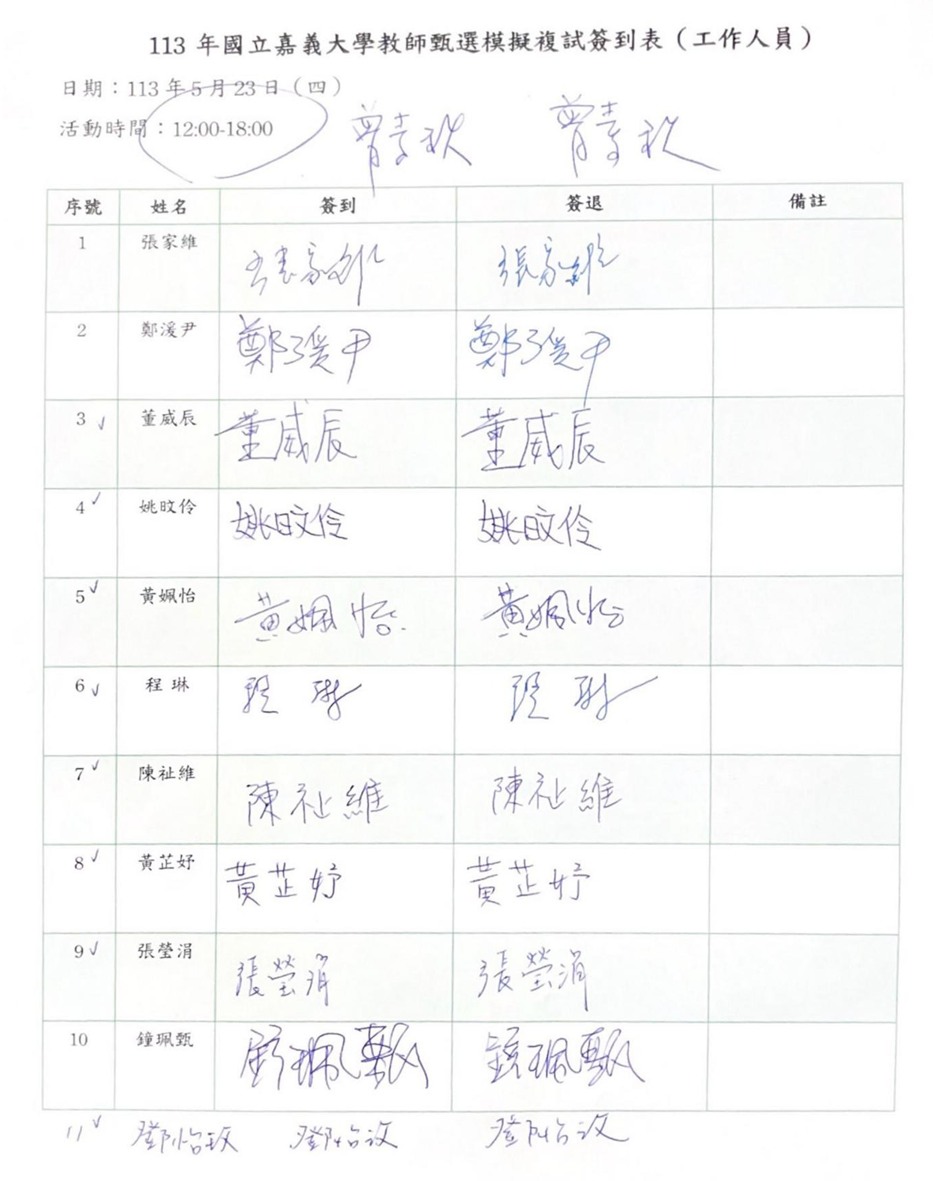 113 年國立嘉義大學教師甄選模擬複試簽到表（工作人員）
日期：113 年 5 月 23 日（四）
活動時間：12:00-18:00
曾素秋 曾素秋
序號 姓名 簽到 簽退 備註
1 張家維 張家維 張家維
2 鄭湲尹 鄭湲尹 鄭湲尹
3 ✓ 董威辰 董威辰 董威辰
4 ✓ 姚旼伶 姚旼伶 姚旼伶
5 ✓ 黃姵怡 黃姵怡 黃姵怡
6 ✓ 程 琳 程 琳 程 琳
7 ✓ 陳祉維 陳祉維 陳祉維
8 ✓ 黃芷妤 黃芷妤 黃芷妤
9 ✓ 張瑩涓 張瑩涓 張瑩涓
10 鐘珮甄 鐘珮甄 鐘珮甄
11 ✓ 鄧怡玫 鄧怡玫 鄧怡玫